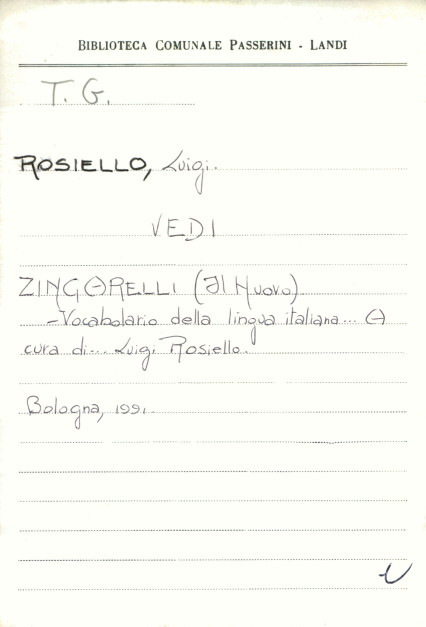 BIBLIOTECA COMUNALE PASSERINI - LANDI
T. G.
ROSIELLO, Luigi.
VEDI
ZINGARELLI (Il Nuovo)
-Vocabolario della lingua italiana... A
cura di... Luigi Rosiello.
Bologna, 1991.